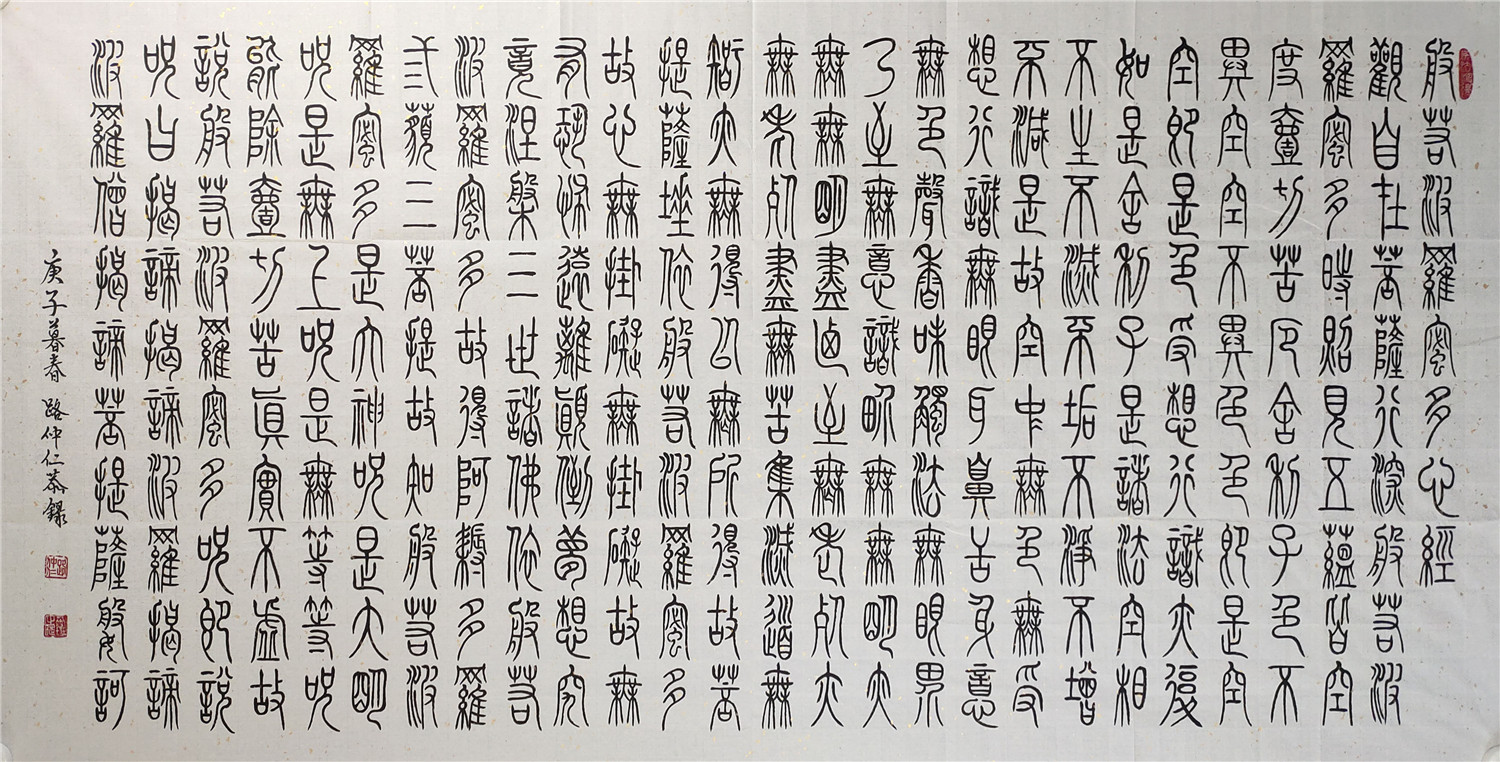 般若波羅蜜多心經
觀自在菩薩行深般若波
羅蜜多時照見五蘊皆空
度壹切苦厄舍利子色不
異空空不異色色即是空
空即是色受想行識亦復
如是舍利子是諸法空相
不生不滅不垢不淨不增
不減是故空中無色無受
想行識無眼耳鼻舌身意
無色聲香味觸法無眼界
乃至無意識界無無明亦
無無明盡乃至無老死亦
無老死盡無苦集滅道無
智亦無得以無所得故菩
提薩埵依般若波羅蜜多
故心無掛礙無掛礙故無
有恐怖遠離顛倒夢想究
竟涅槃三世諸佛依般若
波羅蜜多故得阿耨多羅
弎藐三菩提故知般若波
羅蜜多是大神咒是大明
咒是無上咒是無等等咒
能除壹切苦真實不虛故
說般若波羅蜜多咒即說
咒曰揭諦揭諦波羅揭諦
波羅僧揭諦菩提薩婆訶
庚子暮春 路仲仁恭錄